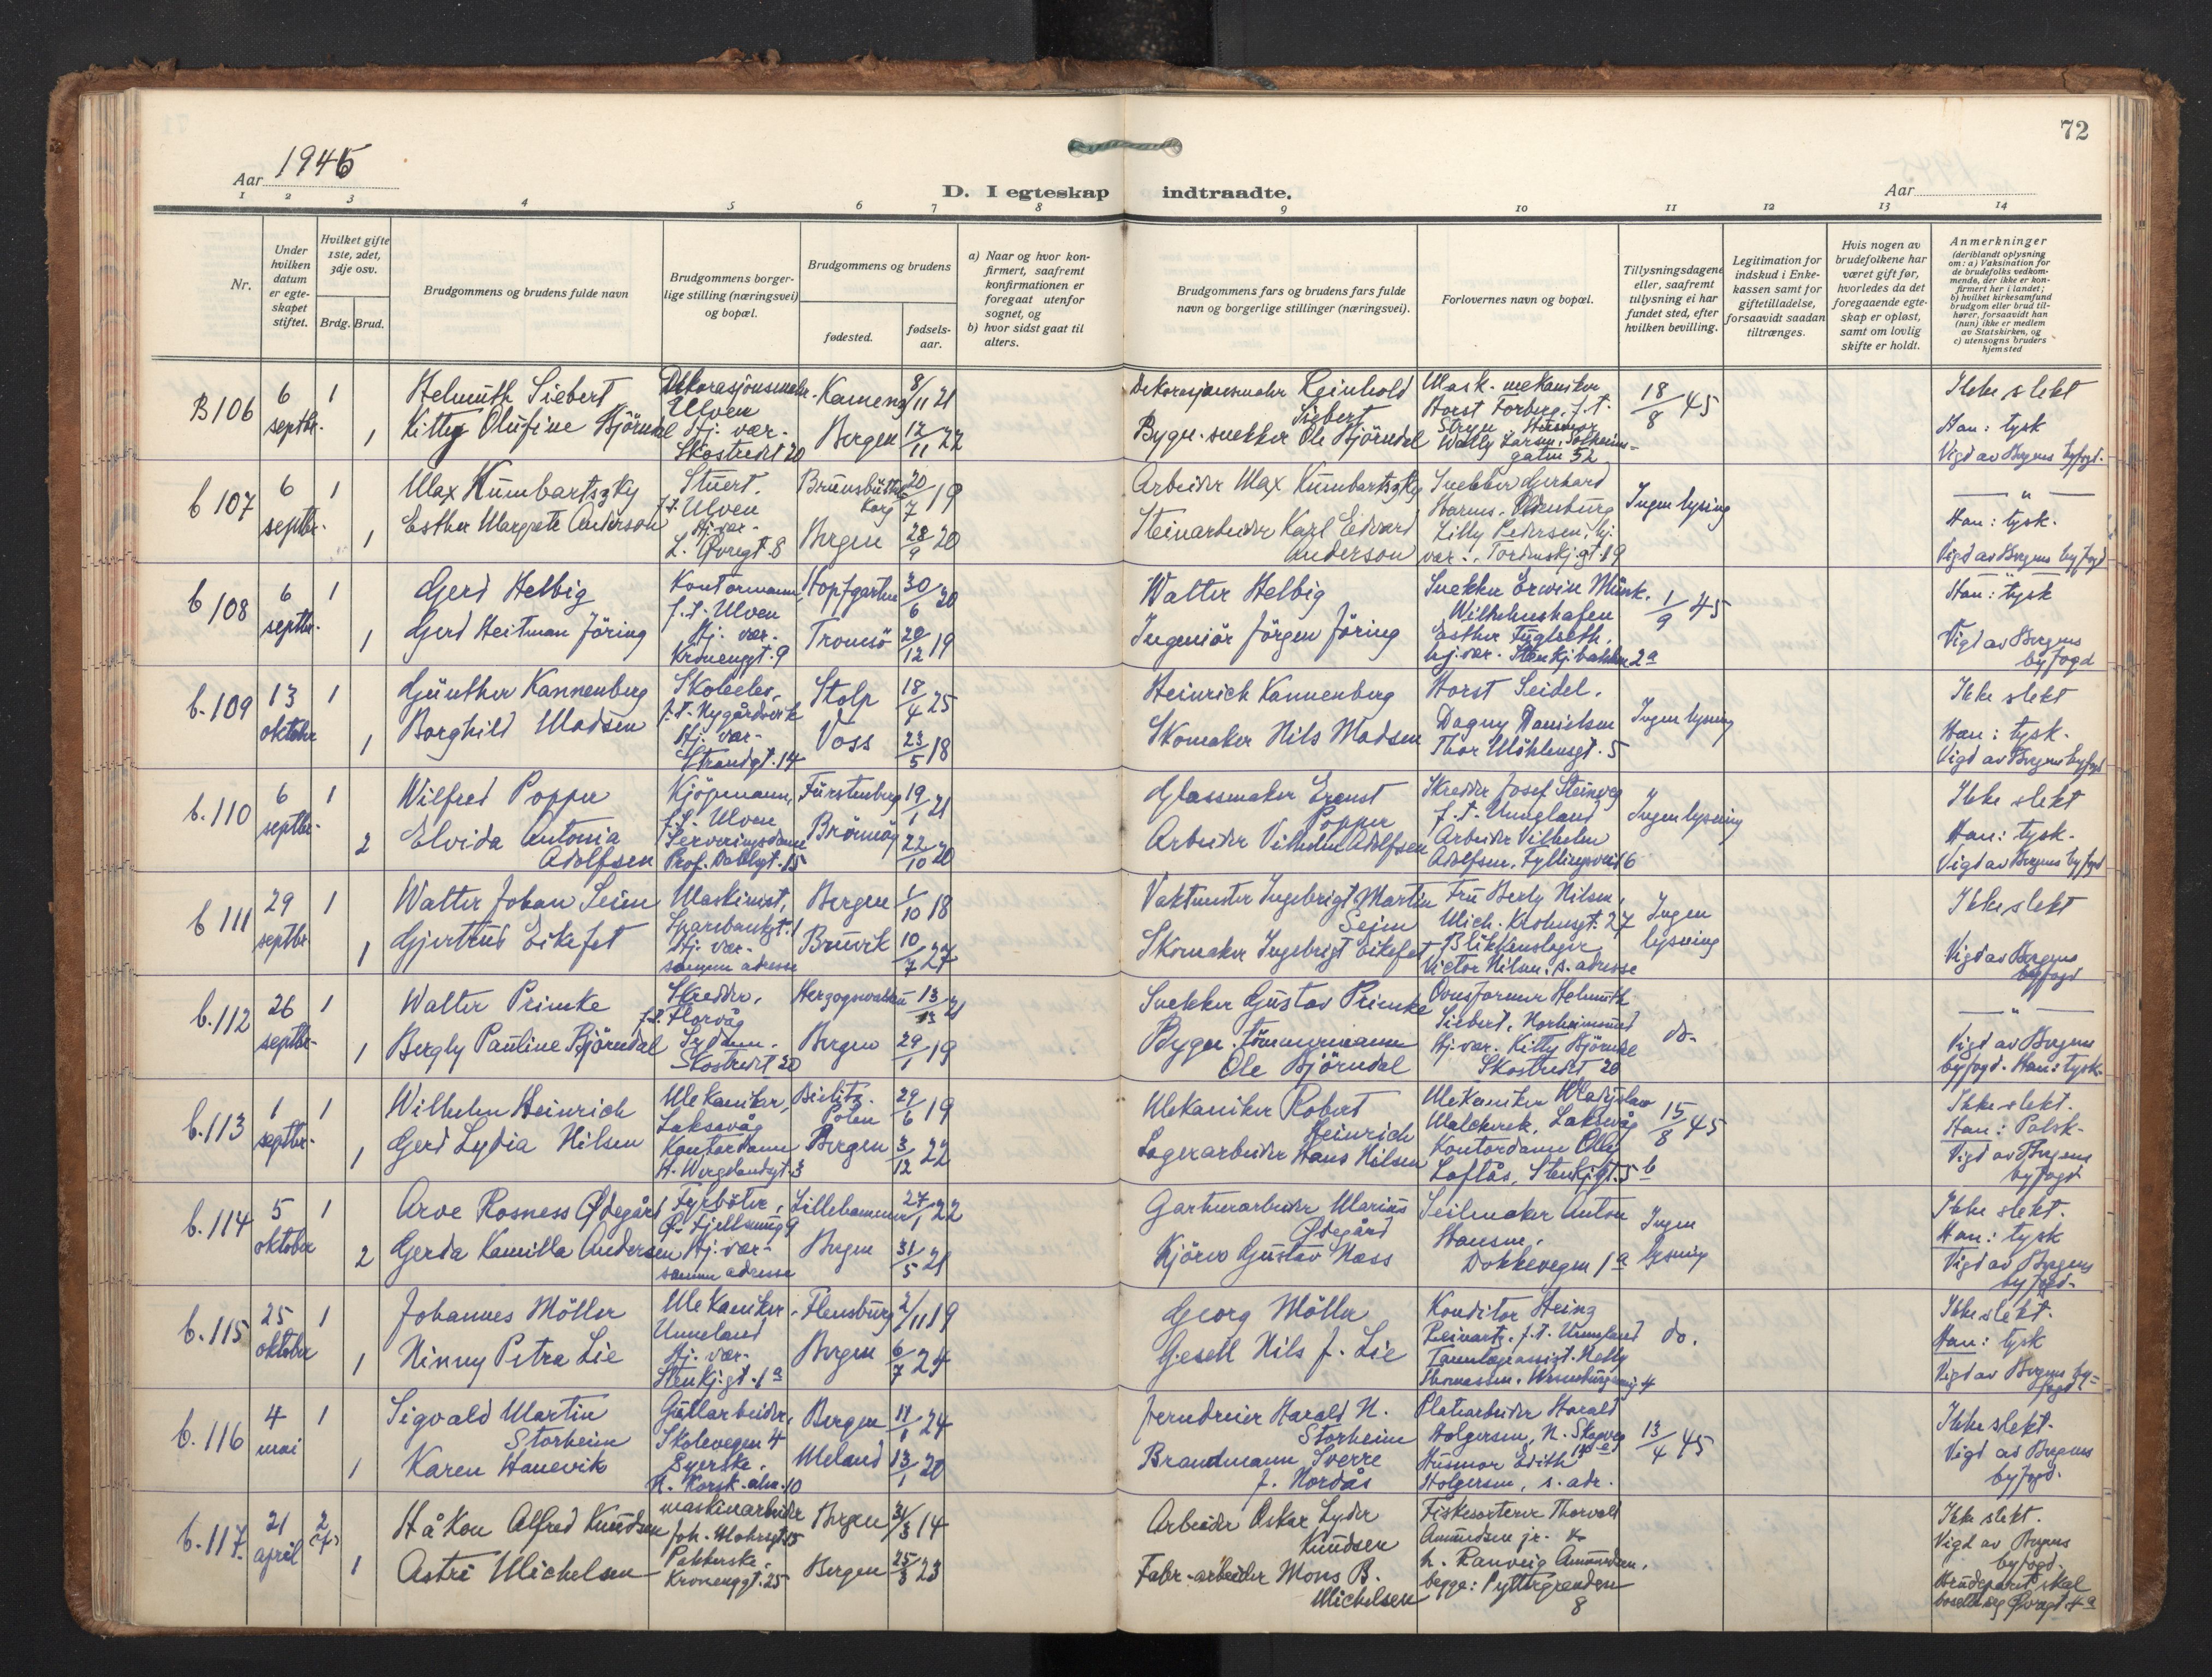 72
Aar 1945
D. I egteskap indtraadte.
Aar
1 2 3 4 5 6 7 8 9 10 11 12 13 14
Nr.
Under hvilken datum er egteskapet stiftet.
Hvilket gifte 1ste, 2det, 3dje osv.
Brdg. Brud.
Brudgommens og brudens fulde navn
Brudgommens borgerlige stilling (næringsvei) og bopæl.
Brudgommens og brudens
fødested.
fødselsaar.
a) Naar og hvor konfirmert, saafremt konfirmationen er foregaat utenfor sognet, og
b) hvor sidst gaat til alters.
Brudgommens fars og brudens fars fulde navn og borgerlige stillinger (næringsvei).
Forlovernes navn og bopæl.
Tillysningsdagene eller, saafremt tillysning ei har fundet sted, efter hvilken bevilling.
Legitimation for indskud i Enkekassen samt for giftetilladelse, forsaavidt saadan tiltrænges.
Hvis nogen av brudefolkene har været gift før, hvorledes da det foregaaende egteskap er opløst, samt om lovlig skifte er holdt.
Anmerkninger (deriblandt oplysning om: a) Vaksination for de brudefolks vedkommende, der ikke er konfirmert her i landet; b) hvilket kirkesamfund brudgom eller brud tilhører, forsaavidt han (hun) ikke er medlem av Statskirken, og c) utensogns bruders hjemsted
B 106 6 septbr. 1 Helmuth Siebert Dekorasjonsmaler Ulven Kamenz 8/11 21 Dekorasjonsmaler Reinhold Siebert Mask. mekaniker Horst Forberg, f.t. Stryn 18/8 45 Ikke slekt
1 Kitty Olufine Björndal Hj. vær. Skostredet 20 Bergen 12/11 22 Bygn. snekker Ole Björndal Husmor Wally Larsen, Solheimsgaten 52 Han: tysk
Vigd av Bergens byfogd.
b 107 6 septbr. 1 Max Kumbartszky Stuert. f.t. Ulven Brunsbüttelkoog 20/7 19 Arbeider Max Kumbartszky Snekker Gerhard Harms, Oldenburg Ingen lysing — " —
1 Esther Margrete Anderson Hj. vær. L. Øvregt. 8 Bergen 28/9 20 Steinarbeider Karl Edvard Anderson Lilly Pedersen, hj. vær., Tordenskj.gt. 19 Han: tysk.
Vigd av Bergens byfogd
b 108 6 septbr. 1 Gerd Helbig Kontormann, f.t. Ulven Hopfgarten 30/6 20 Walter Helbig Snekker Erwin Münk, Wilhelmshafen 1/9 45 Han: tysk
1 Gerd Heitman Jöring Hj. vær. Kroneggt. 9 Tromsö 29/12 19 Ingeniör Jörgen Jöring Esther Fuglseth, hj. vær. Stenkj.bakken 2a Vigd av Bergens byfogd
b. 109 13 oktober 1 Günther Kannenberg Skoleelev, f.t. Nygårdsvik Stolp 18/4 25 Heinrich Kannenberg Horst Seidel. Ingen lysning Ikke slekt
1 Borghild Madsen Hj. vær. Strandgt. 14 Voss 23/5 18 Skomaker Nils Madsen Dagny Danielsen Thor Möhlensgt. 5 Han: tysk.
Vigd av Bergens byfogd
b. 110 6 septbr. 1 Wilfred Popper Kjöpmann, f.t. Ulven Fürstenberg 19/1 21 Glassmaker Ernst Popper Skredder Josef Steinweg f.t. Unneland Ingen lysning Ikke slekt
2 Elvida Antonia Adolfsen Serveringsdame Prof. Dahlsgt. 15 Brönnöy 22/10 20 Arbeider Vilhelm Adolfsen Arbeider Vilhelm Adolfsen, Fyllingsveit 6 Han: tysk.
Vigd av Bergens byfogd
b 111 29 septbr. 1 Walter Johan Seim Maskinist, Sparebankgt. 1 Bergen 1/10 18 Vaktmester Ingebrigt Martin Seim Fru Berly Nilsen, Mich. Krohnsgt. 27 Ingen lysning Ikke slekt
1 Gjertrud Eikefet Hj. vær. samme adresse Bruvik 10/7 27 Skomaker Ingebrigt Eikefet Blikkenslager Victor Nilsen, s. adresse Vigd av Bergens byfogd
b. 112 26 septbr. 1 Walter Primke Skredder, f.t. Florvåg Herzogswaldau 13/ 21 Snekker Gustav Primke Ovnsformer Helmuth Siebert, Norheimsund do. — " —
1 Bergly Pauline Björndal Sydame. Skostredet 20 Bergen 29/1 19 Bygn. tömmermann Ole Björndal Hj. vær. Kitty Björndal Skostredet 20 Vigd av Bergens byfogd. Han: tysk.
b. 113 1 septbr. 1 Wilhelm Heinrich Mekaniker, Laksevåg Bielitz. Polen 29/6 19 Mekaniker Robert Heinrich Mekaniker Wladyslav Malcherek, Laksevåg 15/8 45 Ikke slekt.
1 Gerd Lydia Nilsen Kontordame H. Wergelandsgt. 3 Bergen 3/12 22 Lagerarbeider Hans Nilsen Kontordame Elly Loftås, Stenkj.gt. 5 b Han: Polsk.
Vigd av Bergens byfogd
b. 114 5 oktober 1 Arve Rosness Ødegård Fyrböter, Ø. Fjellsmug 9 Lillehammer 27/1 22 Gartnerarbeider Marius Ødegård Seilmaker Anton Hansen, Ingen lysning Ikke slekt.
2 Gerda Kamilla Andersen Hj. vær. samme adresse Bergen 31/5 21 Kjörer Gustav Næss Dokkevegen 1a Han: tysk
Vigd av Bergens byfogd.
b. 115 25 oktober 1 Johannes Möller Mekaniker. Unneland Flensburg 2/11 19 Georg Möller Konditor Heinz Reinartz, f.t. Unneland do. Ikke slekt.
1 Ninny Petra Lie Hj. vær. Stenkj.gt. 1a Bergen 6/7 24 Gesell Nils J. Lie Tannlegeassist. Nelly Thomassen, Wesenbergsmug 4 Han: tysk
Vigd av Bergens byfogd
b. 116 4 mai 1 Sigvald Martin Storheim Gullarbeider, Skolevegen 4 Bergen 11/1 24 Jerndreier Harald N. Storheim Platearbeider Harald Holgersen, N. Skogveg 13/4 45 Ikke slekt.
1 Karen Hanevik Syerske. N. Korsk.alm. 10 Meland 13/1 20 Brandmann Sverre J. Nordås Husmor Edith Holgersen, s. adr. Vigd av Bergens byfogd.
b. 117. 21 april 2 Håkon Alfred Knudsen maskinarbeider Joh. Mohrsgt. 15 Bergen 31/3 14 Arbeider Oskar Lyder Knudsen Fiskesorterer Thorvald Amundsen jr. & Ikke slekt.
1 Astri Michelsen Pakkerske. Kroneggt. 25 Bergen 25/3 23 Fabr. arbeider Mons B. Michelsen h. Ranveig Amundsen. begge: Pyttergrenden 8 Vigd av Bergens byfogd.
Brudeparet skal bosette seg Øvregt. 4a